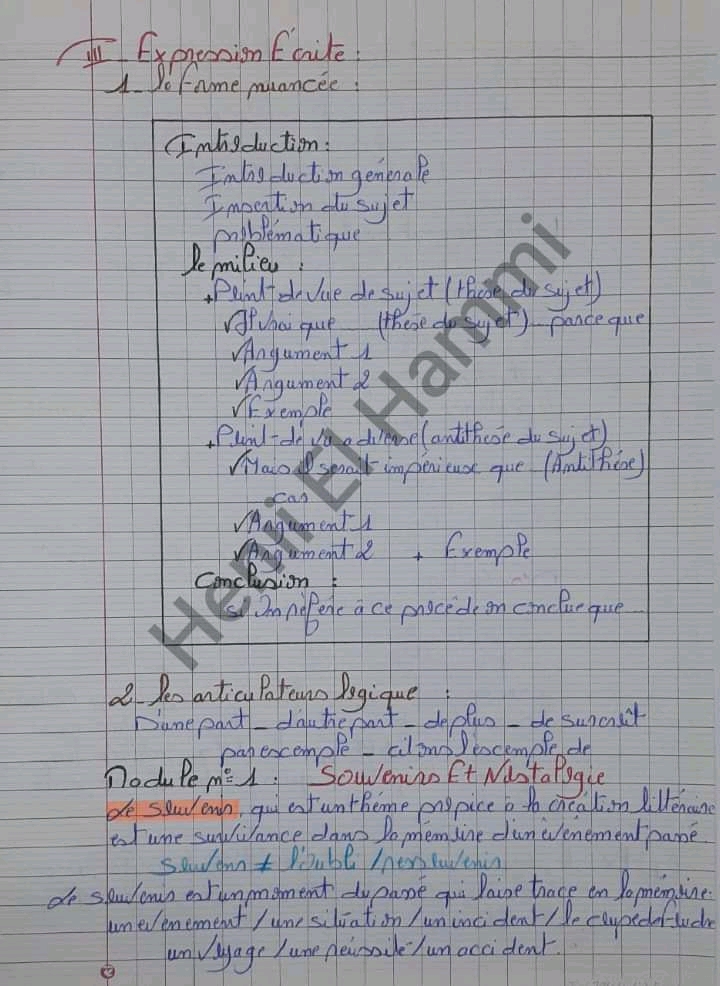 III - Expression Écrite :
1 - la forme nuancée :
Introduction :
Introduction génerale
Insertion du sujet
problématique
le milieu :
+ Point-de vue de sujet (thèse du sujet)
✓ Il vrai que (thèse du sujet) parce que
✓ Argument 1
✓ Argument 2
✓ Exemple
+ Point-de vu adverse (antithèse du sujet)
✓ Mais il serait impérieuse que (Antithèse)
car
✓ Argument 1
✓ Argument 2 + Exemple
Conclusion :
si on réfère à ce procéde on conclue que
2 - les articulateurs logique :
D'une part - d'autre part - de plus - de surcroît
par exemple - citons l'exemple de
Module n° 1 : Souvenirs Et Nostalgie
Le souvenir, qui est un thème propice à la création littéraire
est une survivance dans la mémoire d'un évènement passé
Souvenir ≠ l'oubli / non souvenir
Le souvenir est un moment du passé qui laise trace en la mémoire.
un evenement / une situation / un incident / le coup de foudre
un voyage / une réussite / un accident.
Henii El Hammi